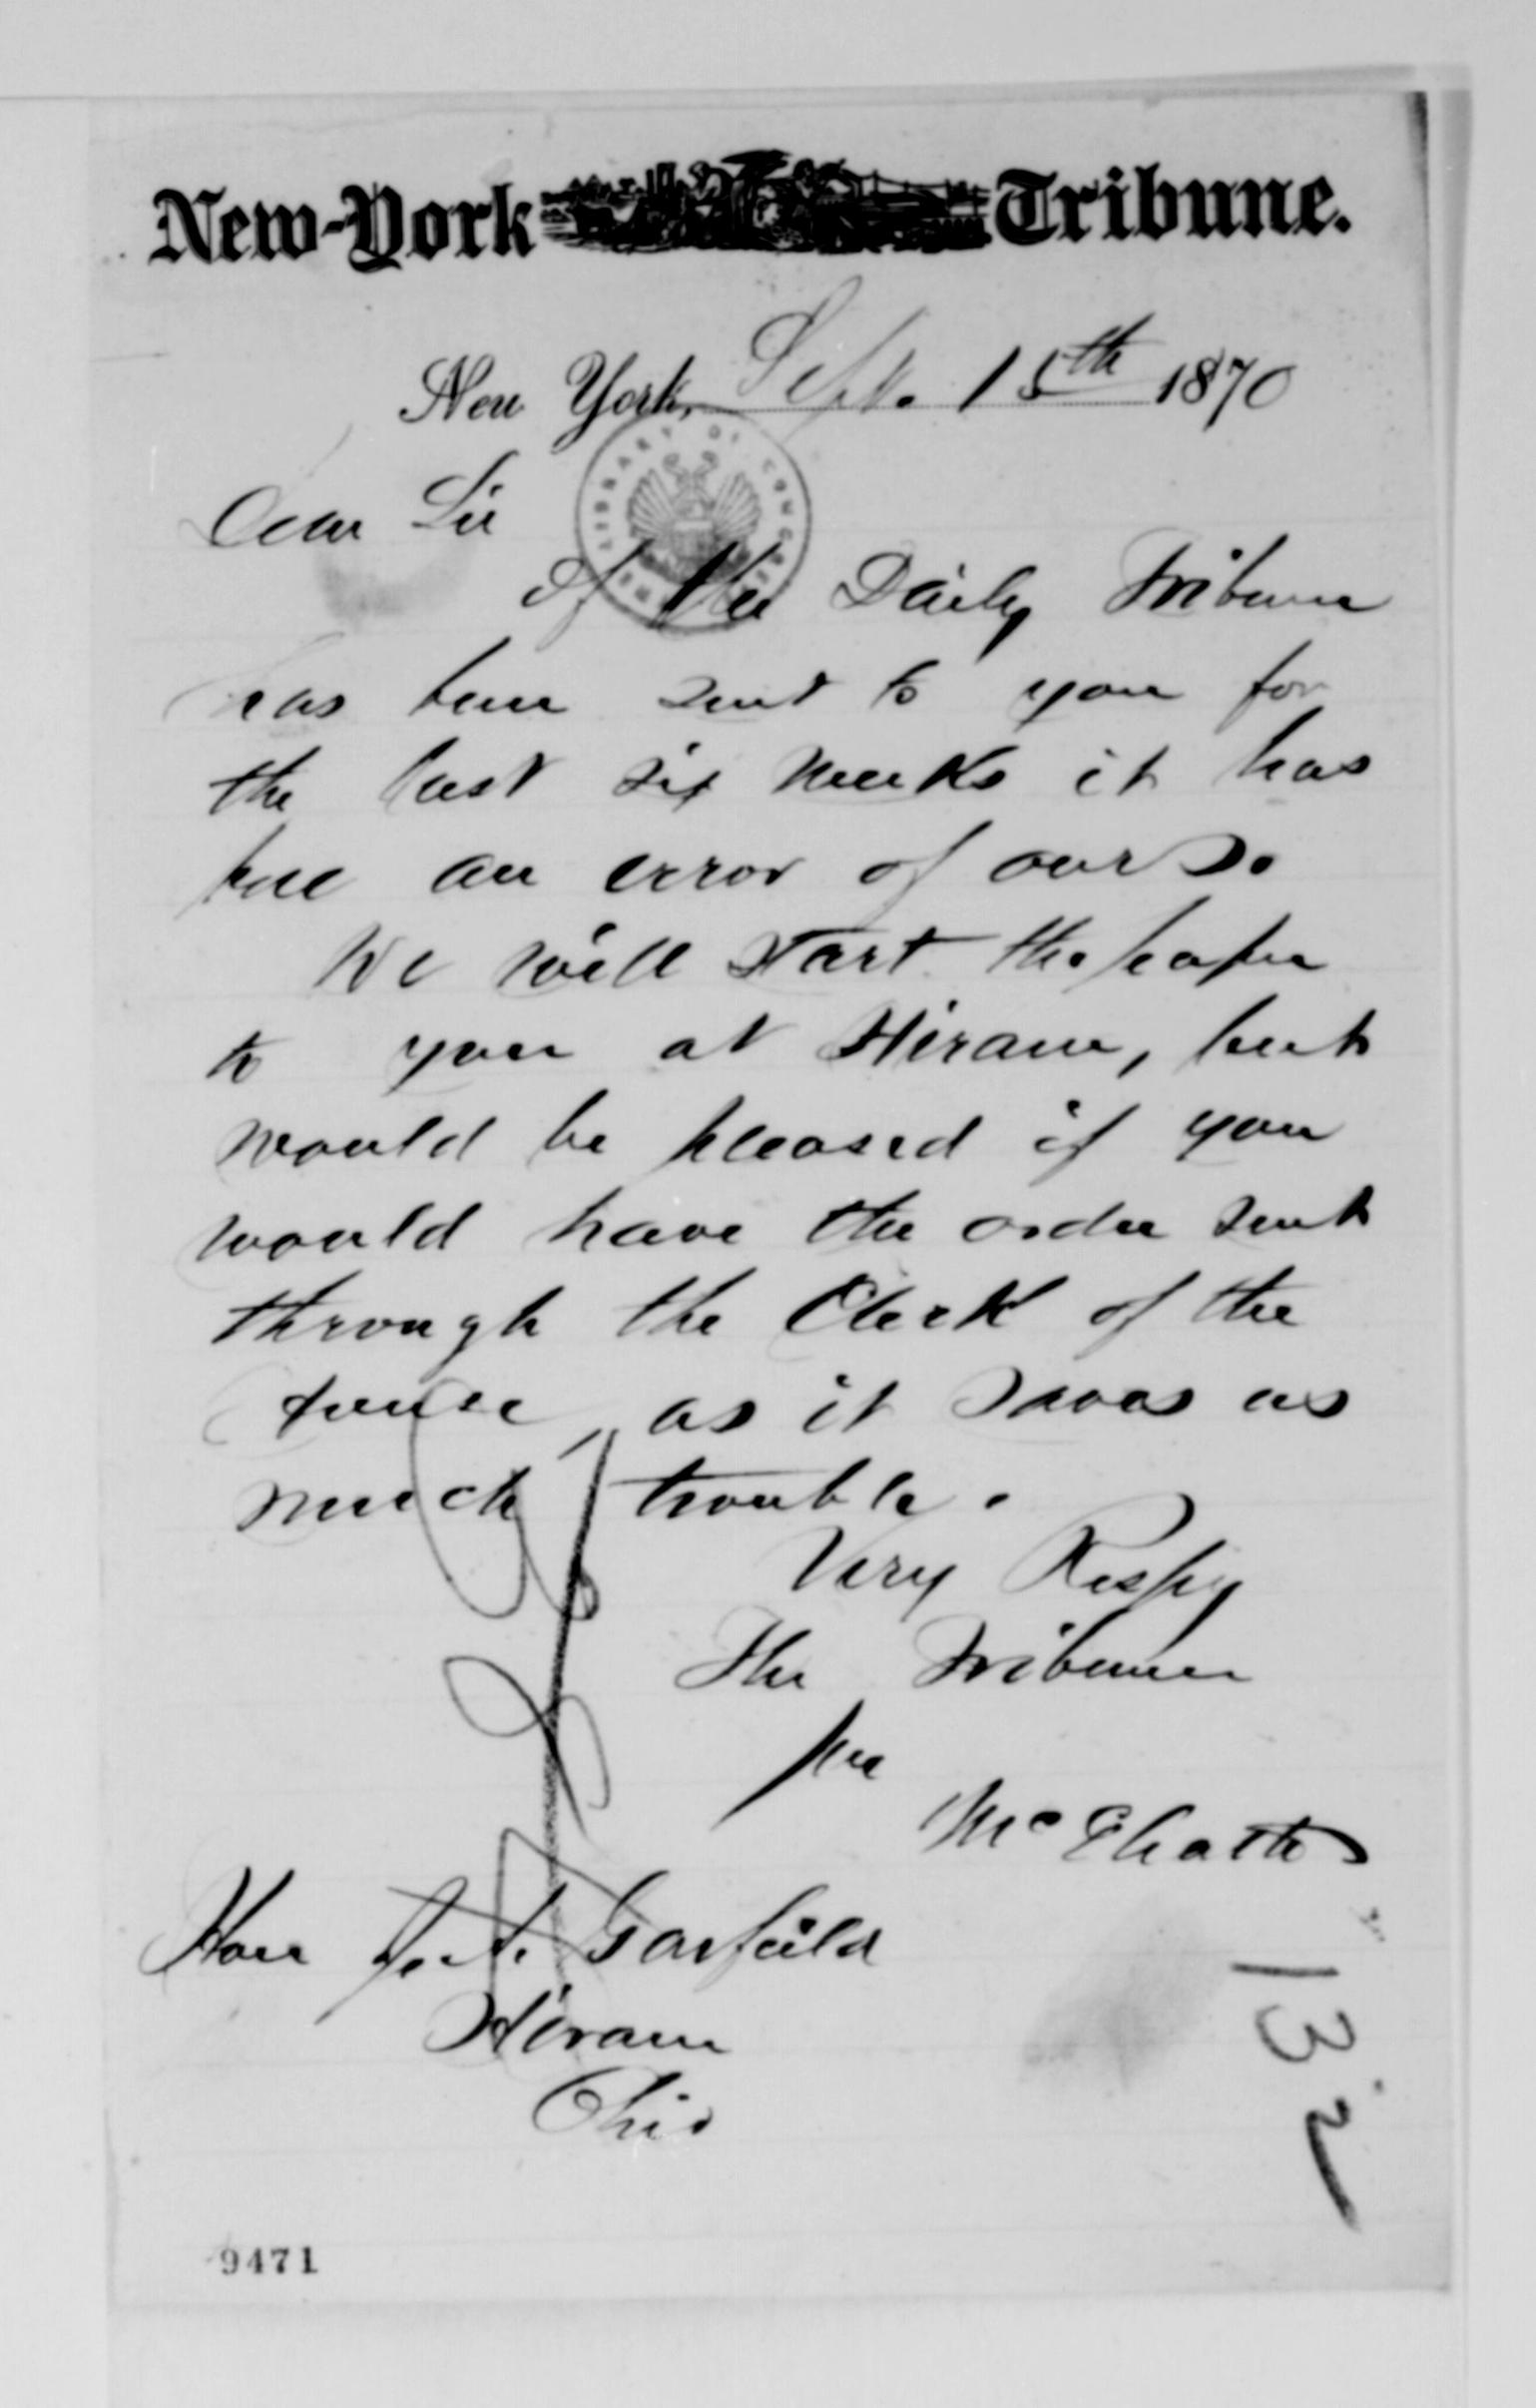 New-York Tribune.
New York, Sept. 15th 1870
Dear Sir
If the Daily Tribune
has been sent to you for
the last six weeks it has
been an error of ours.
We will start the paper
to you at Hiram, but
would be pleased if you
would have the order sent
through the Clerk of the
House, as it saves us
much trouble.
Very Respy
The Tribune
per
McElrath
Hon J. A. Garfield
Hiram
Ohio
132
9471